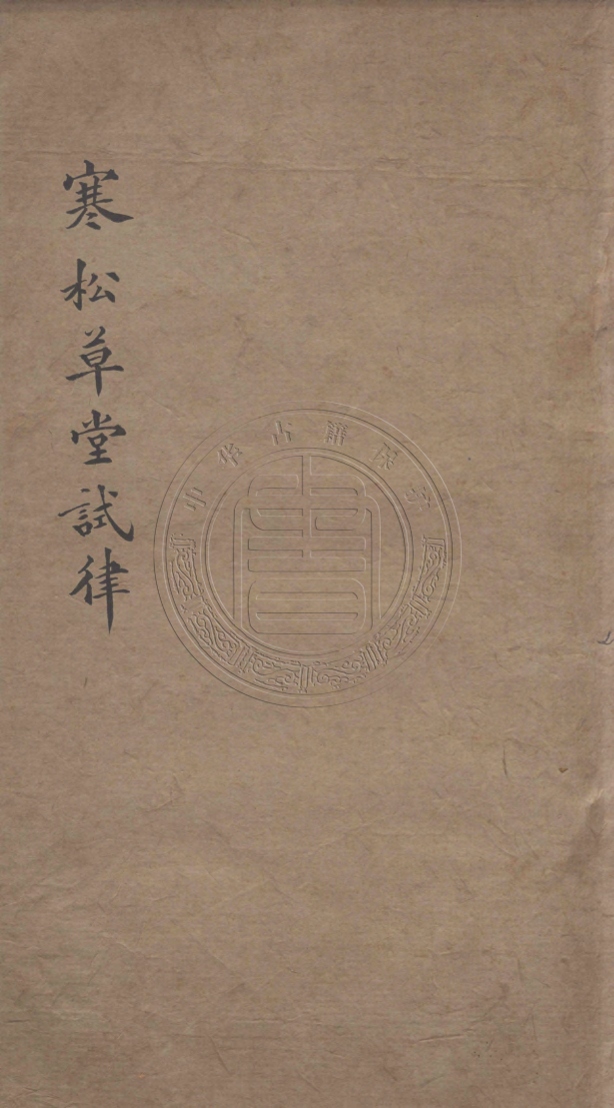 寒松草堂試律